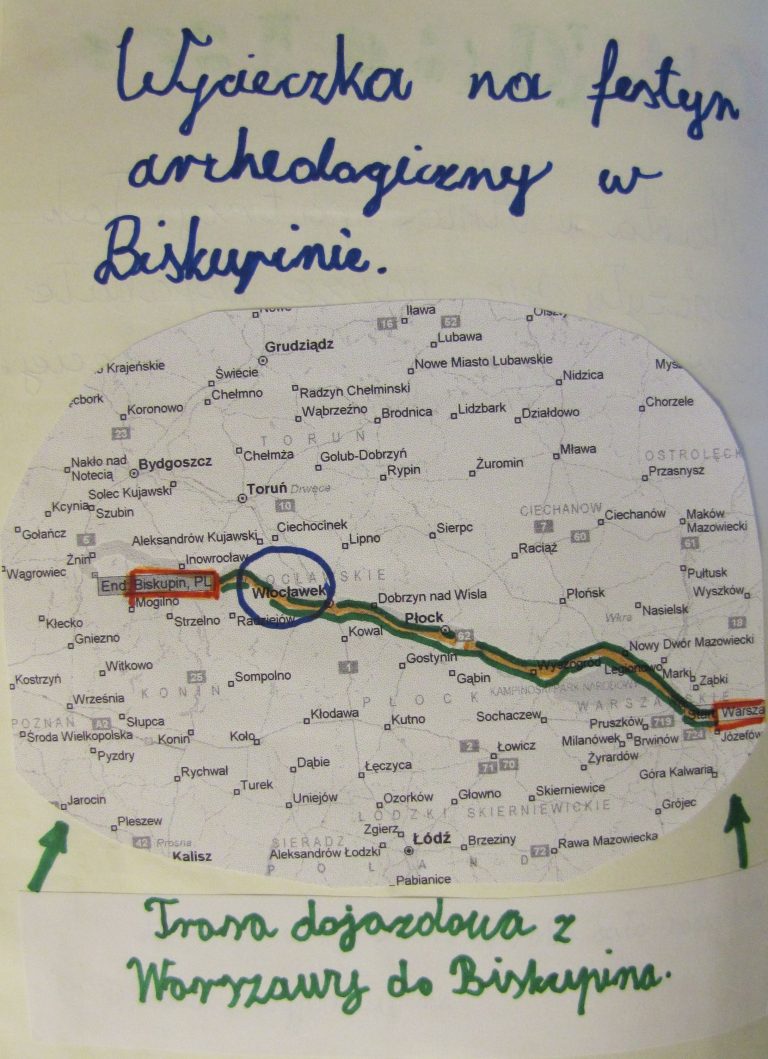 Wycieczka na festyn
archeologiczny w
Biskupinie.
Iława
16
62
Lubawa
Grudziądz
Krajeńskie
Świecie
Nowe Miasto Lubawskie
Nidzica
Chełmno
Radzyn Chelminski
Koronowo
Wąbrzeźno
Brodnica
Lidzbark
Działdowo
Chorzele
23
TORUŃ
Nakło nad
Notecią
Bydgoszcz
Chełmża
Golub-Dobrzyń
Rypin
Żuromin
Mława
OSTROŁĘCK
Przasnysz
Solec Kujawski
Toruń
Drwęca
10
Kcynia
Szubin
CIECHANOW
Ciechanów
Maków
Mazowiecki
Gołańcz
6
Aleksandrów Kujawski
Ciechocinek
Lipno
Sierpc
7
60
61
Raciąż
Żnin
Inowrocław
Wagrowiec
End
Biskupin, PL
OCŁAWSKIE
Włocławek
Dobrzyn nad Wisla
Płońsk
Pułtusk
Wyszków
Mogilno
Strzelno
Radziejów
Płock
Wkra
Nasielsk
18
Kłecko
Gniezno
Kowal
62
Nowy Dwór Mazowiecki
Witkowo
25
Sopolno
1
Gostynin
Gąbin
Wyszogród
Legionowo
Marki
Ząbki
Kostrzyń
KONIN
PŁOCK
KAMPINOSKI PARK NARODOWY
WARSZAWSKIE
Września
Kłodawa
Kutno
Sochaczew
Start
Warsza
POZNAŃ
A2
Słupca
Pruszków
719
724
Józefów
Środa Wielkopolska
Konin
Koło
2
Łowicz
Milanówek
Brwinów
Pyzdry
Dąbie
Łęczyca
71
70
Żyrardów
Rychwał
Góra Kalwaria
Turek
Uniejów
Ozorków
Głowno
Skierniewice
Jarocin
ŁÓDZKI
SKIERNIEWICKIE
Grójec
Pleszew
Zgierz
42
Prosna
SIERADZ
Łódź
Brzeziny
72
Rawa Mazowiecka
Kalisz
Aleksandrów Łodzki
POLAND
Pabianice
Trasa dojazdowa z
Warszawy do Biskupina.